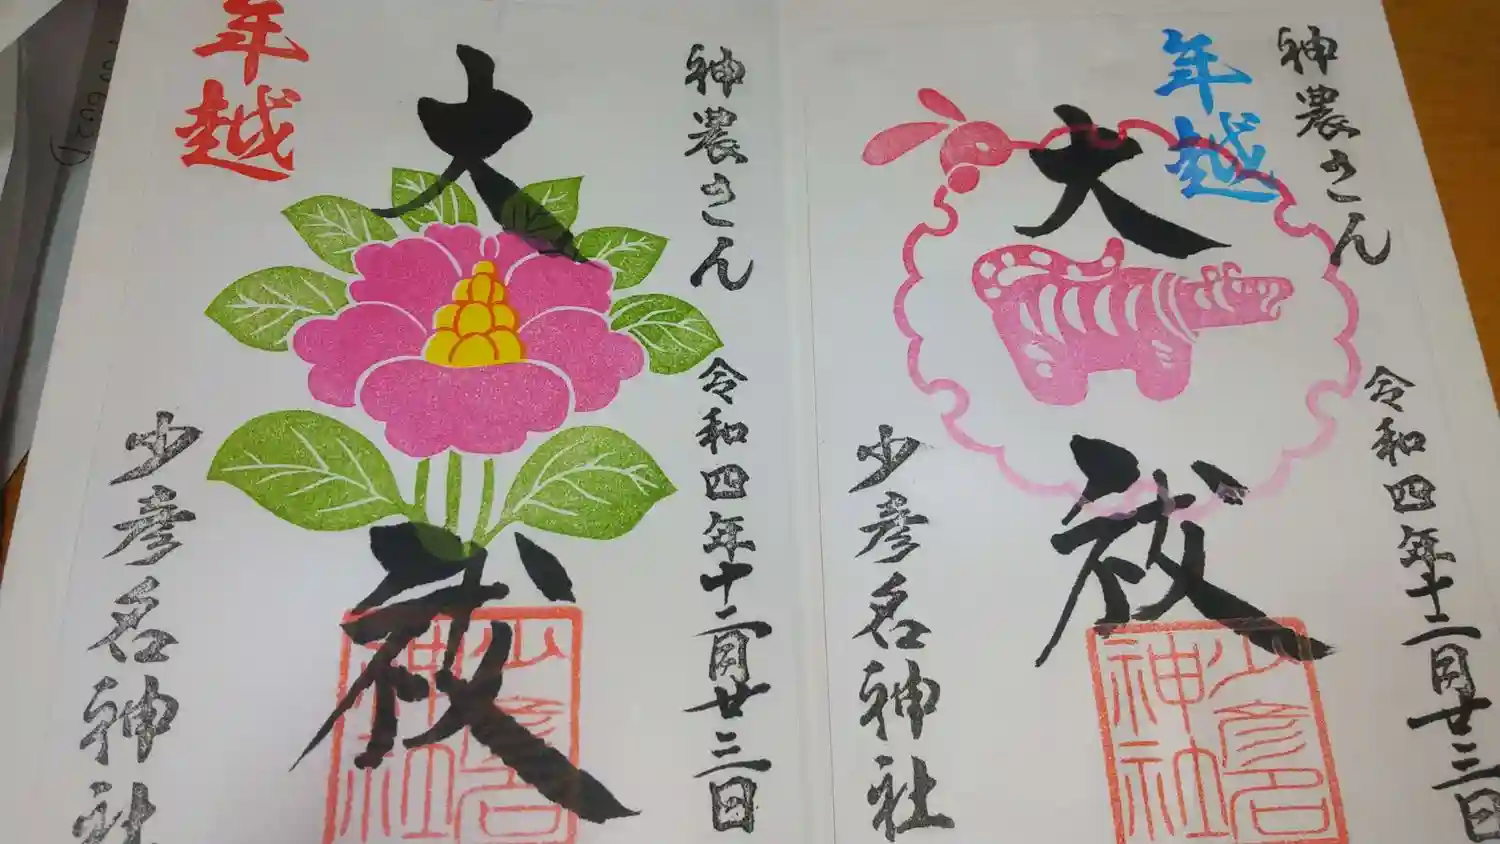 神農さん
年越
大祓
令和四年十二月廿三日
少彦名神社
少彦名神社
神農さん
年越
大祓
令和四年十二月廿三日
少彦名神社
少彦名神社